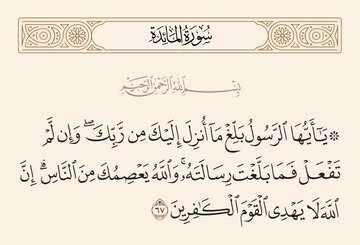 سُورَةُ المَائِدَةِ
بِسْمِ ٱللَّهِ ٱلرَّحْمَٰنِ ٱلرَّحِيمِ
۞ يَٰٓأَيُّهَا ٱلرَّسُولُ بَلِّغْ مَآ أُنزِلَ إِلَيْكَ مِن رَّبِّكَۖ وَإِن لَّمْ
تَفْعَلْ فَمَا بَلَّغْتَ رِسَالَتَهُۥۚ وَٱللَّهُ يَعْصِمُكَ مِنَ ٱلنَّاسِۗ إِنَّ
ٱللَّهَ لَا يَهْدِى ٱلْقَوْمَ ٱلْكَٰفِرِينَ ٦٧